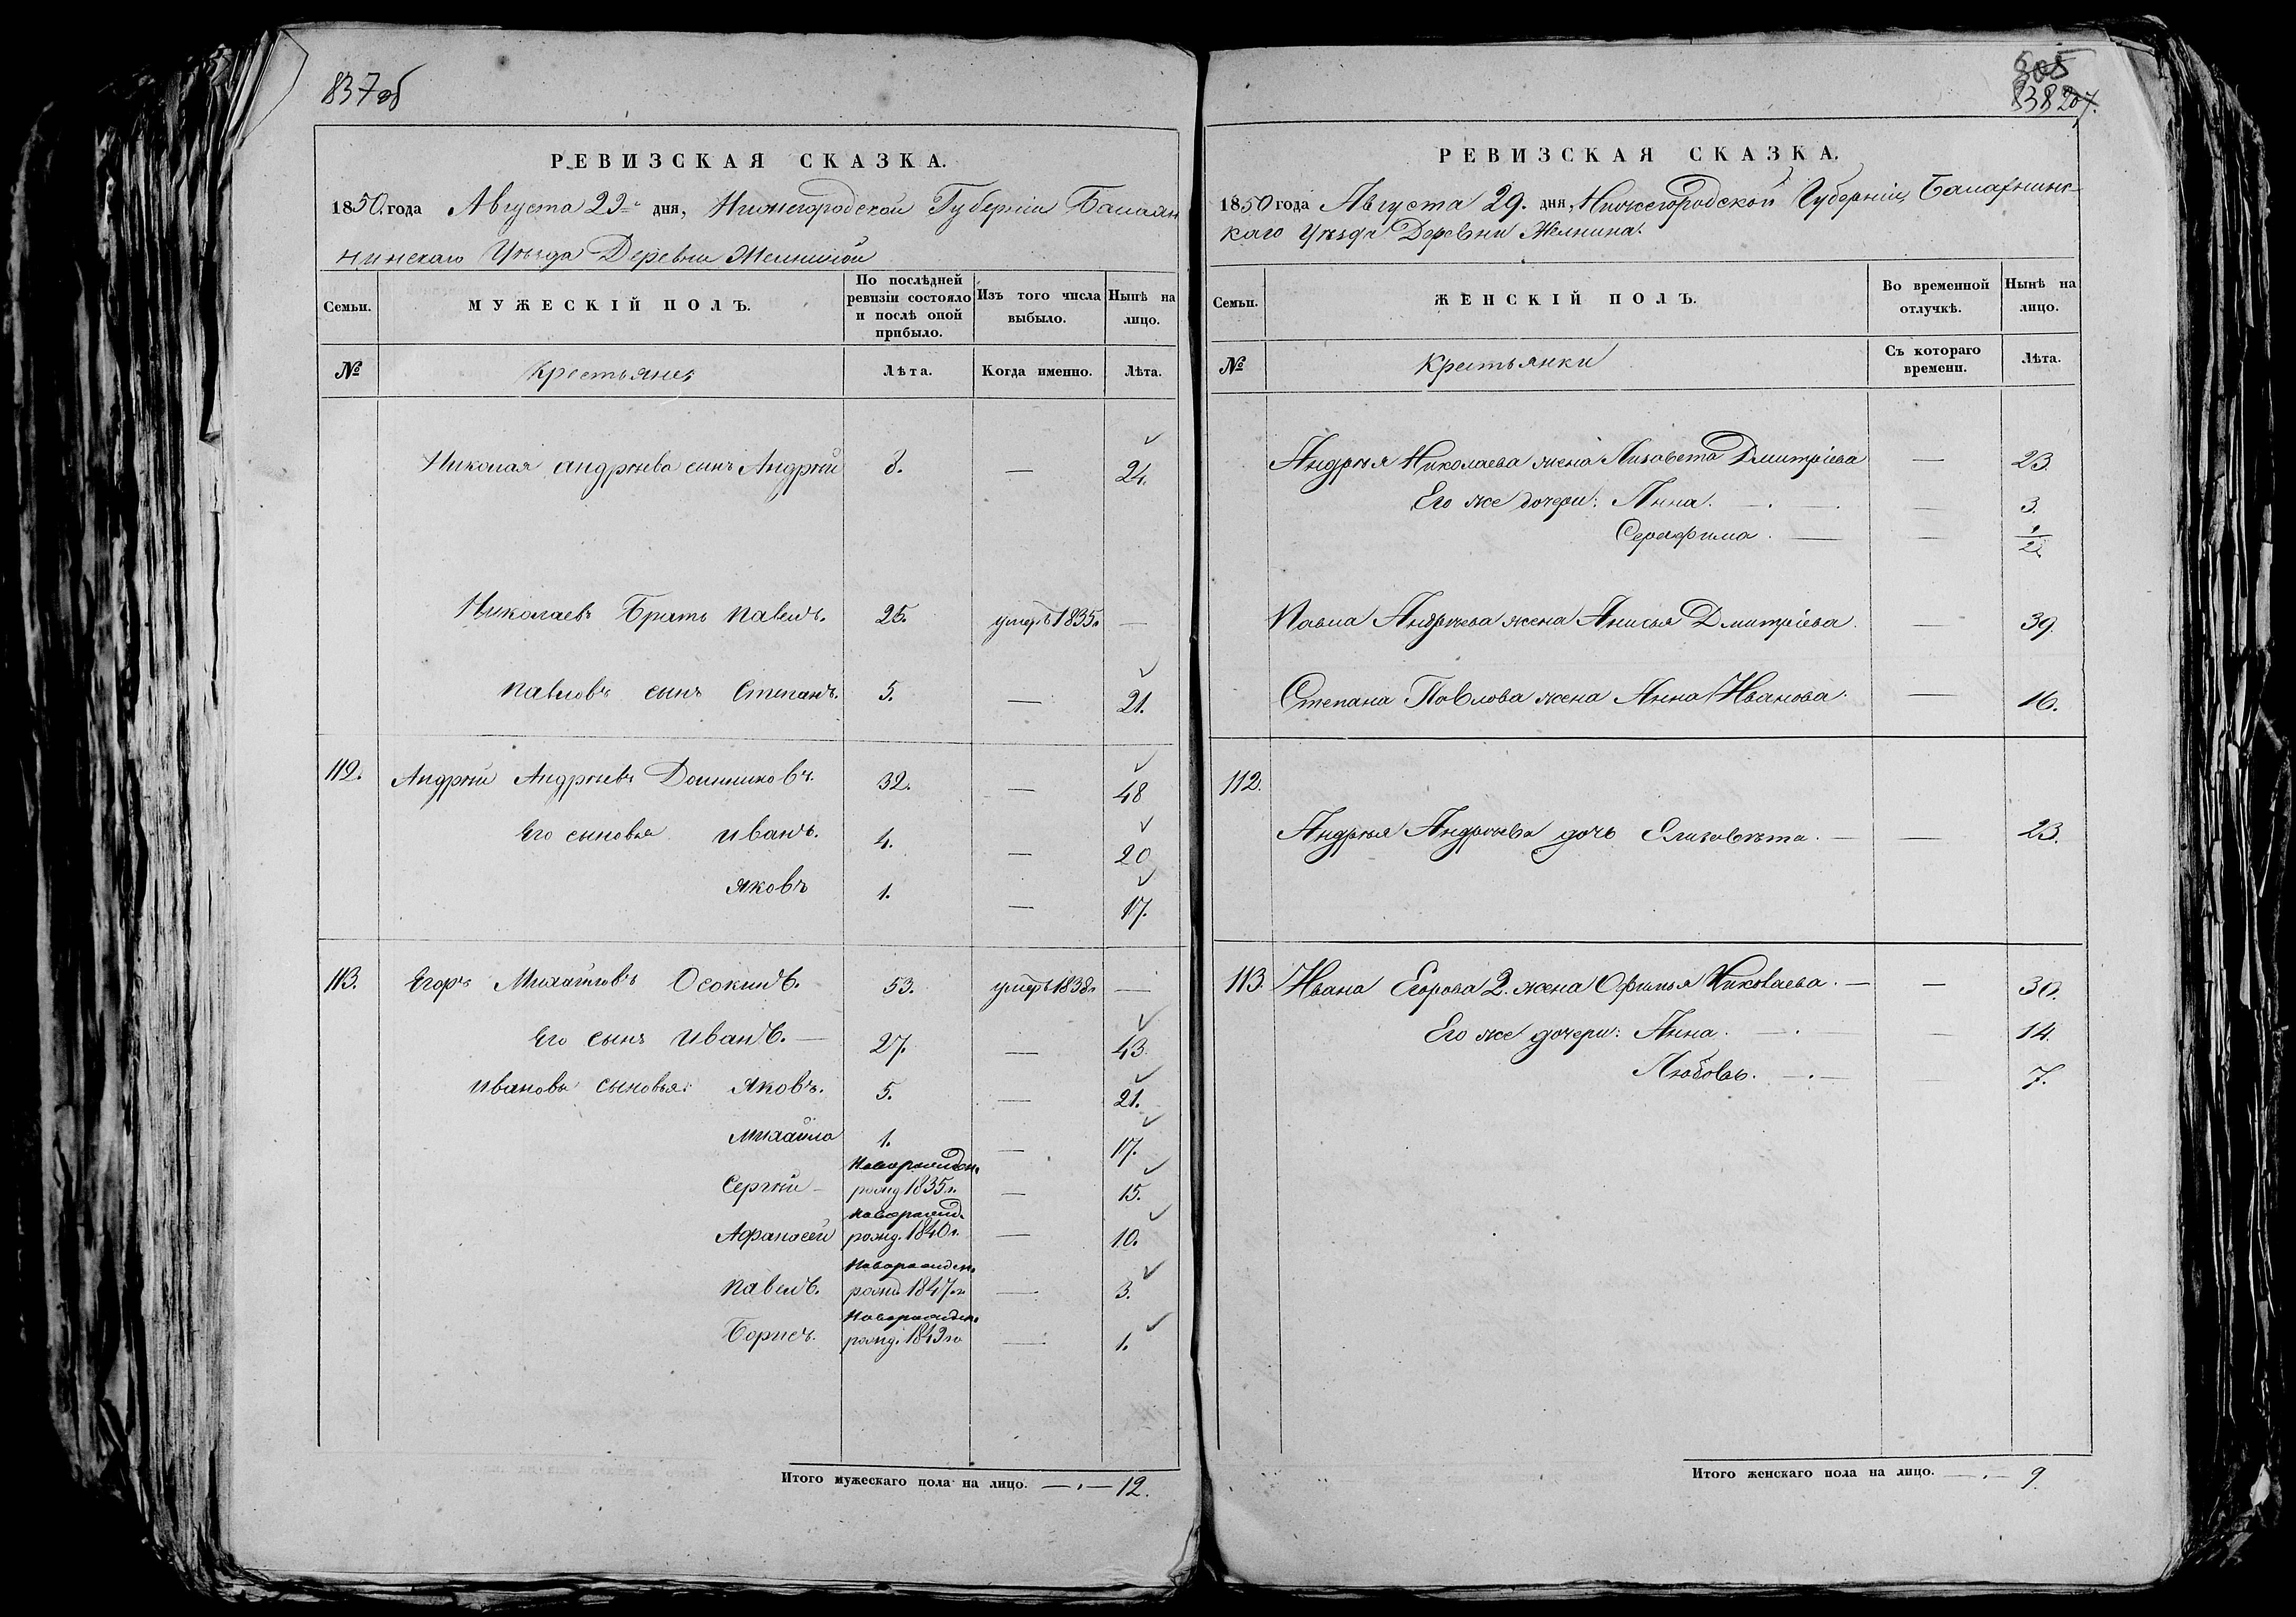 837об
РЕВИЗСКАЯ СКАЗКА.
1850 года Августа 29 дня, Нижегородской Губернiи Балах
нинскаго Уѣзда Деревни Желниной
Семьи. МУЖЕСКIЙ ПОЛЪ. По послѣдней ревизiи состояло и послѣ оной прибыло. Изъ того числа выбыло. Нынѣ на лицо.
№ Крестьяне Лѣта. Когда именно. Лѣта.
Николая андрѣева сынъ Андрѣй 8. — 24.
Николаевъ Братъ павелъ. 25. умеръ 1835 —
павловъ сынъ Степанъ. 5. — 21.
112. Андрѣй Андрѣевъ 32. — 48
Его сыновья иванъ. 4. — 20
яковъ 1. — 17.
113. Егоръ Михайловъ Осокинъ. 53. умеръ 1838 —
Его сынъ иванъ. — 27. — 43.
ивановы сыновья: яковъ. 5. — 21.
михайло 1. — 17.
новорожден.
Сергѣй — рожд 1835 г. — 15.
новорожд.
Афанасей рожд. 1840 г. — 10.
новорожден.
павелъ. рожд 1847 г. — 3.
новорожден.
Борисъ. рожд. 1849 го — 1.
Итого мужескаго пола на лицо. — 12.
805
838 207.
РЕВИЗСКАЯ СКАЗКА.
1850 года Августа 29. дня, Нижегородской Губернiи Балахнинс
каго Уѣзда Деревни Желнина.
Семьи. ЖЕНСКIЙ ПОЛЪ. Во временной отлучкѣ. Нынѣ на лицо.
№ Крестьянки Съ котораго времени. Лѣта.
Андрѣя Николаева жена Лизавета Дмитрiева — 23.
Его же дочери: Анна. — 3.
Серафима. — 1/2
Павла Андрѣева жена Анисья Дмитрiева. — 39.
Степана Павлова жена Анна Иванова. — 16.
112.
Андрѣя Андрѣева дочь Елизавѣта. — 23.
113 Ивана Егорова 2. жена Офимья Николаева. — 30.
Его же дочери: Анна. — 14.
Любовь. — 7.
Итого женскаго пола на лицо. — 9.